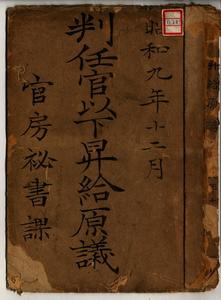 昭和九年十二月
判任官以下昇給原議
官房祕書課